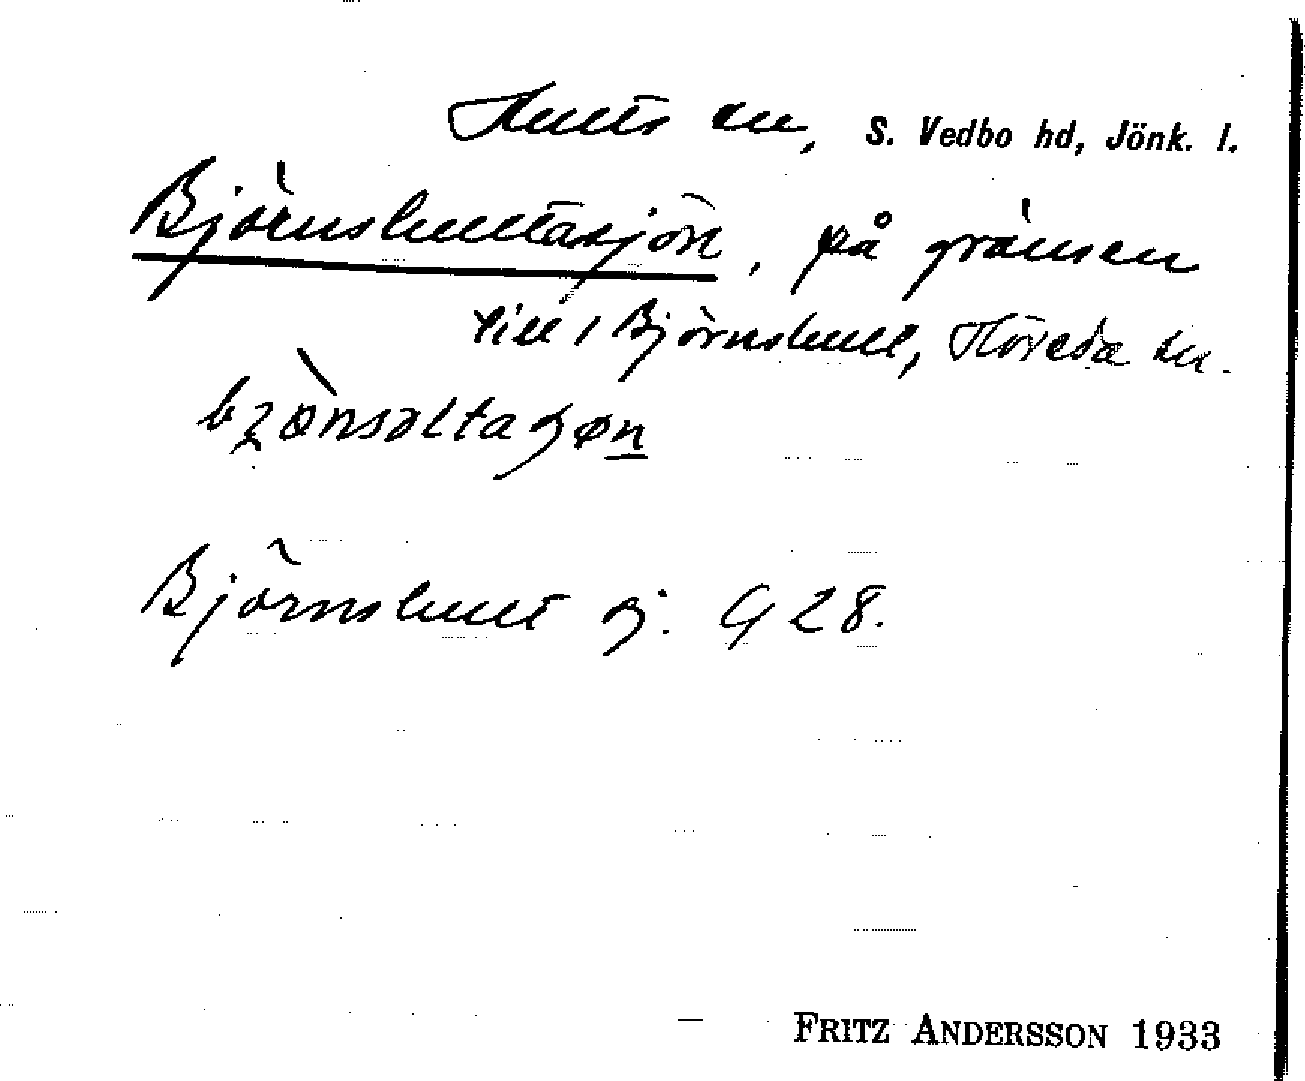 Hults sn, S. Vedbo hd, Jönk. l.
Björnshultasjön, på gränsen
till Björnshult, Höreda sn.
bȷönsəltaʃøn
Björnshult sj. G 28.
FRITZ ANDERSSON 1933